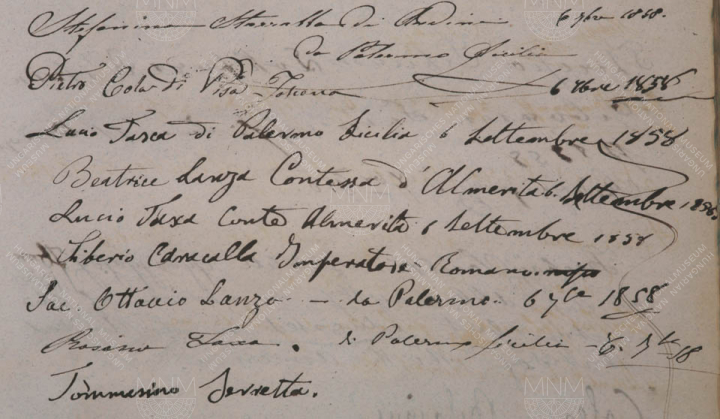 Stefanina Starrabba di Rudinì 6 7bre 1858.
da Palermo Sicilia
Pietro Cola di Pisa Toscana 6 7bre 1858
Lucio Tasca di Palermo Sicilia 6 Settembre 1858
Beatrice Lanza Contessa d'Almerita 6. Settembre 1858.
Lucio Tasca Conte Almerita 6 Settembre 1858
Tiberio Caracalla Imperatore Romano
Sac. Ottavio Lanza - da Palermo. 6 7bre 1858
Rosario Tasca. di Palermo Sicilia - 6. 7bre 58
Tommasino Serretta.
MNM